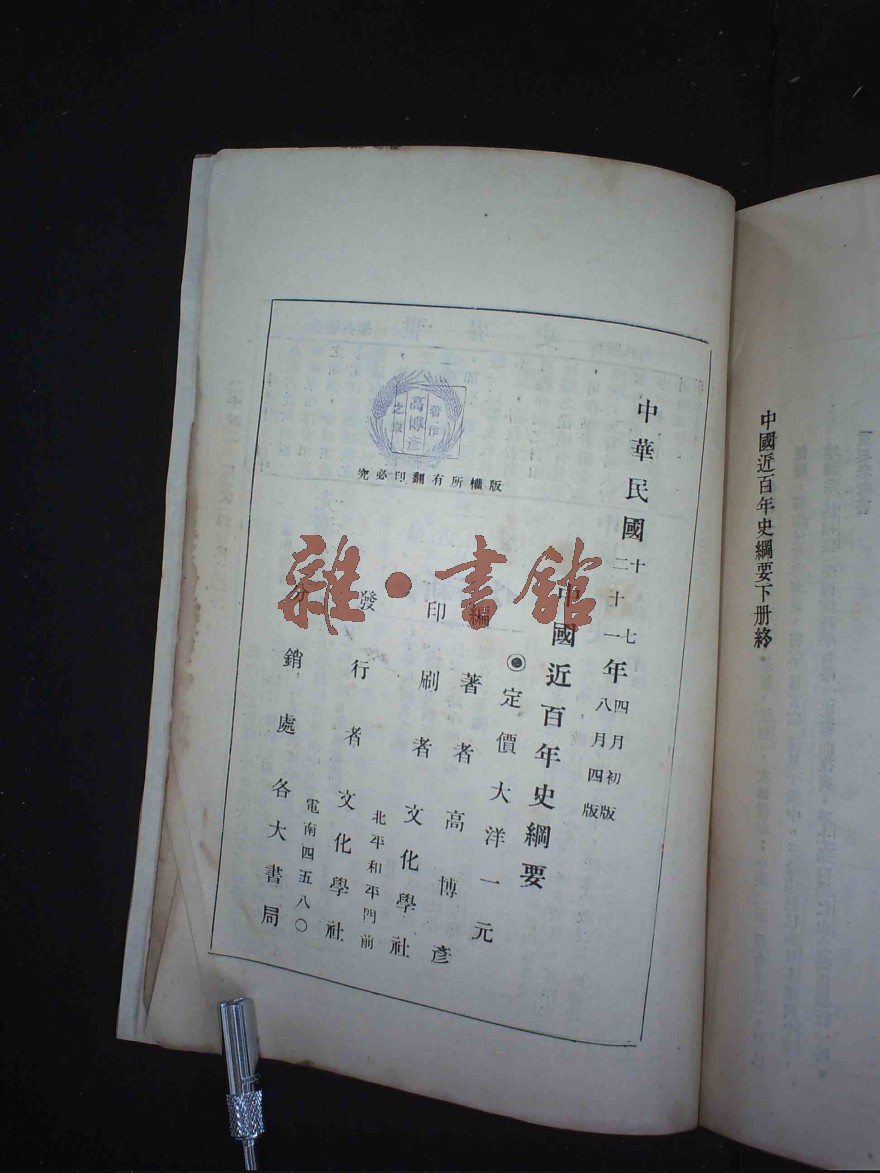 中國近百年史綱要下册終
中華民國
十七年四月初版
二十一年八月四版
中國近百年史綱要
◉定價大洋一元
編著者高博彥
印刷者文化學社
北平和平門前
發行者文化學社
電南四五八〇
分銷處各大書局
版權所有翻印必究
著作
高博彥
之章
雜·書館